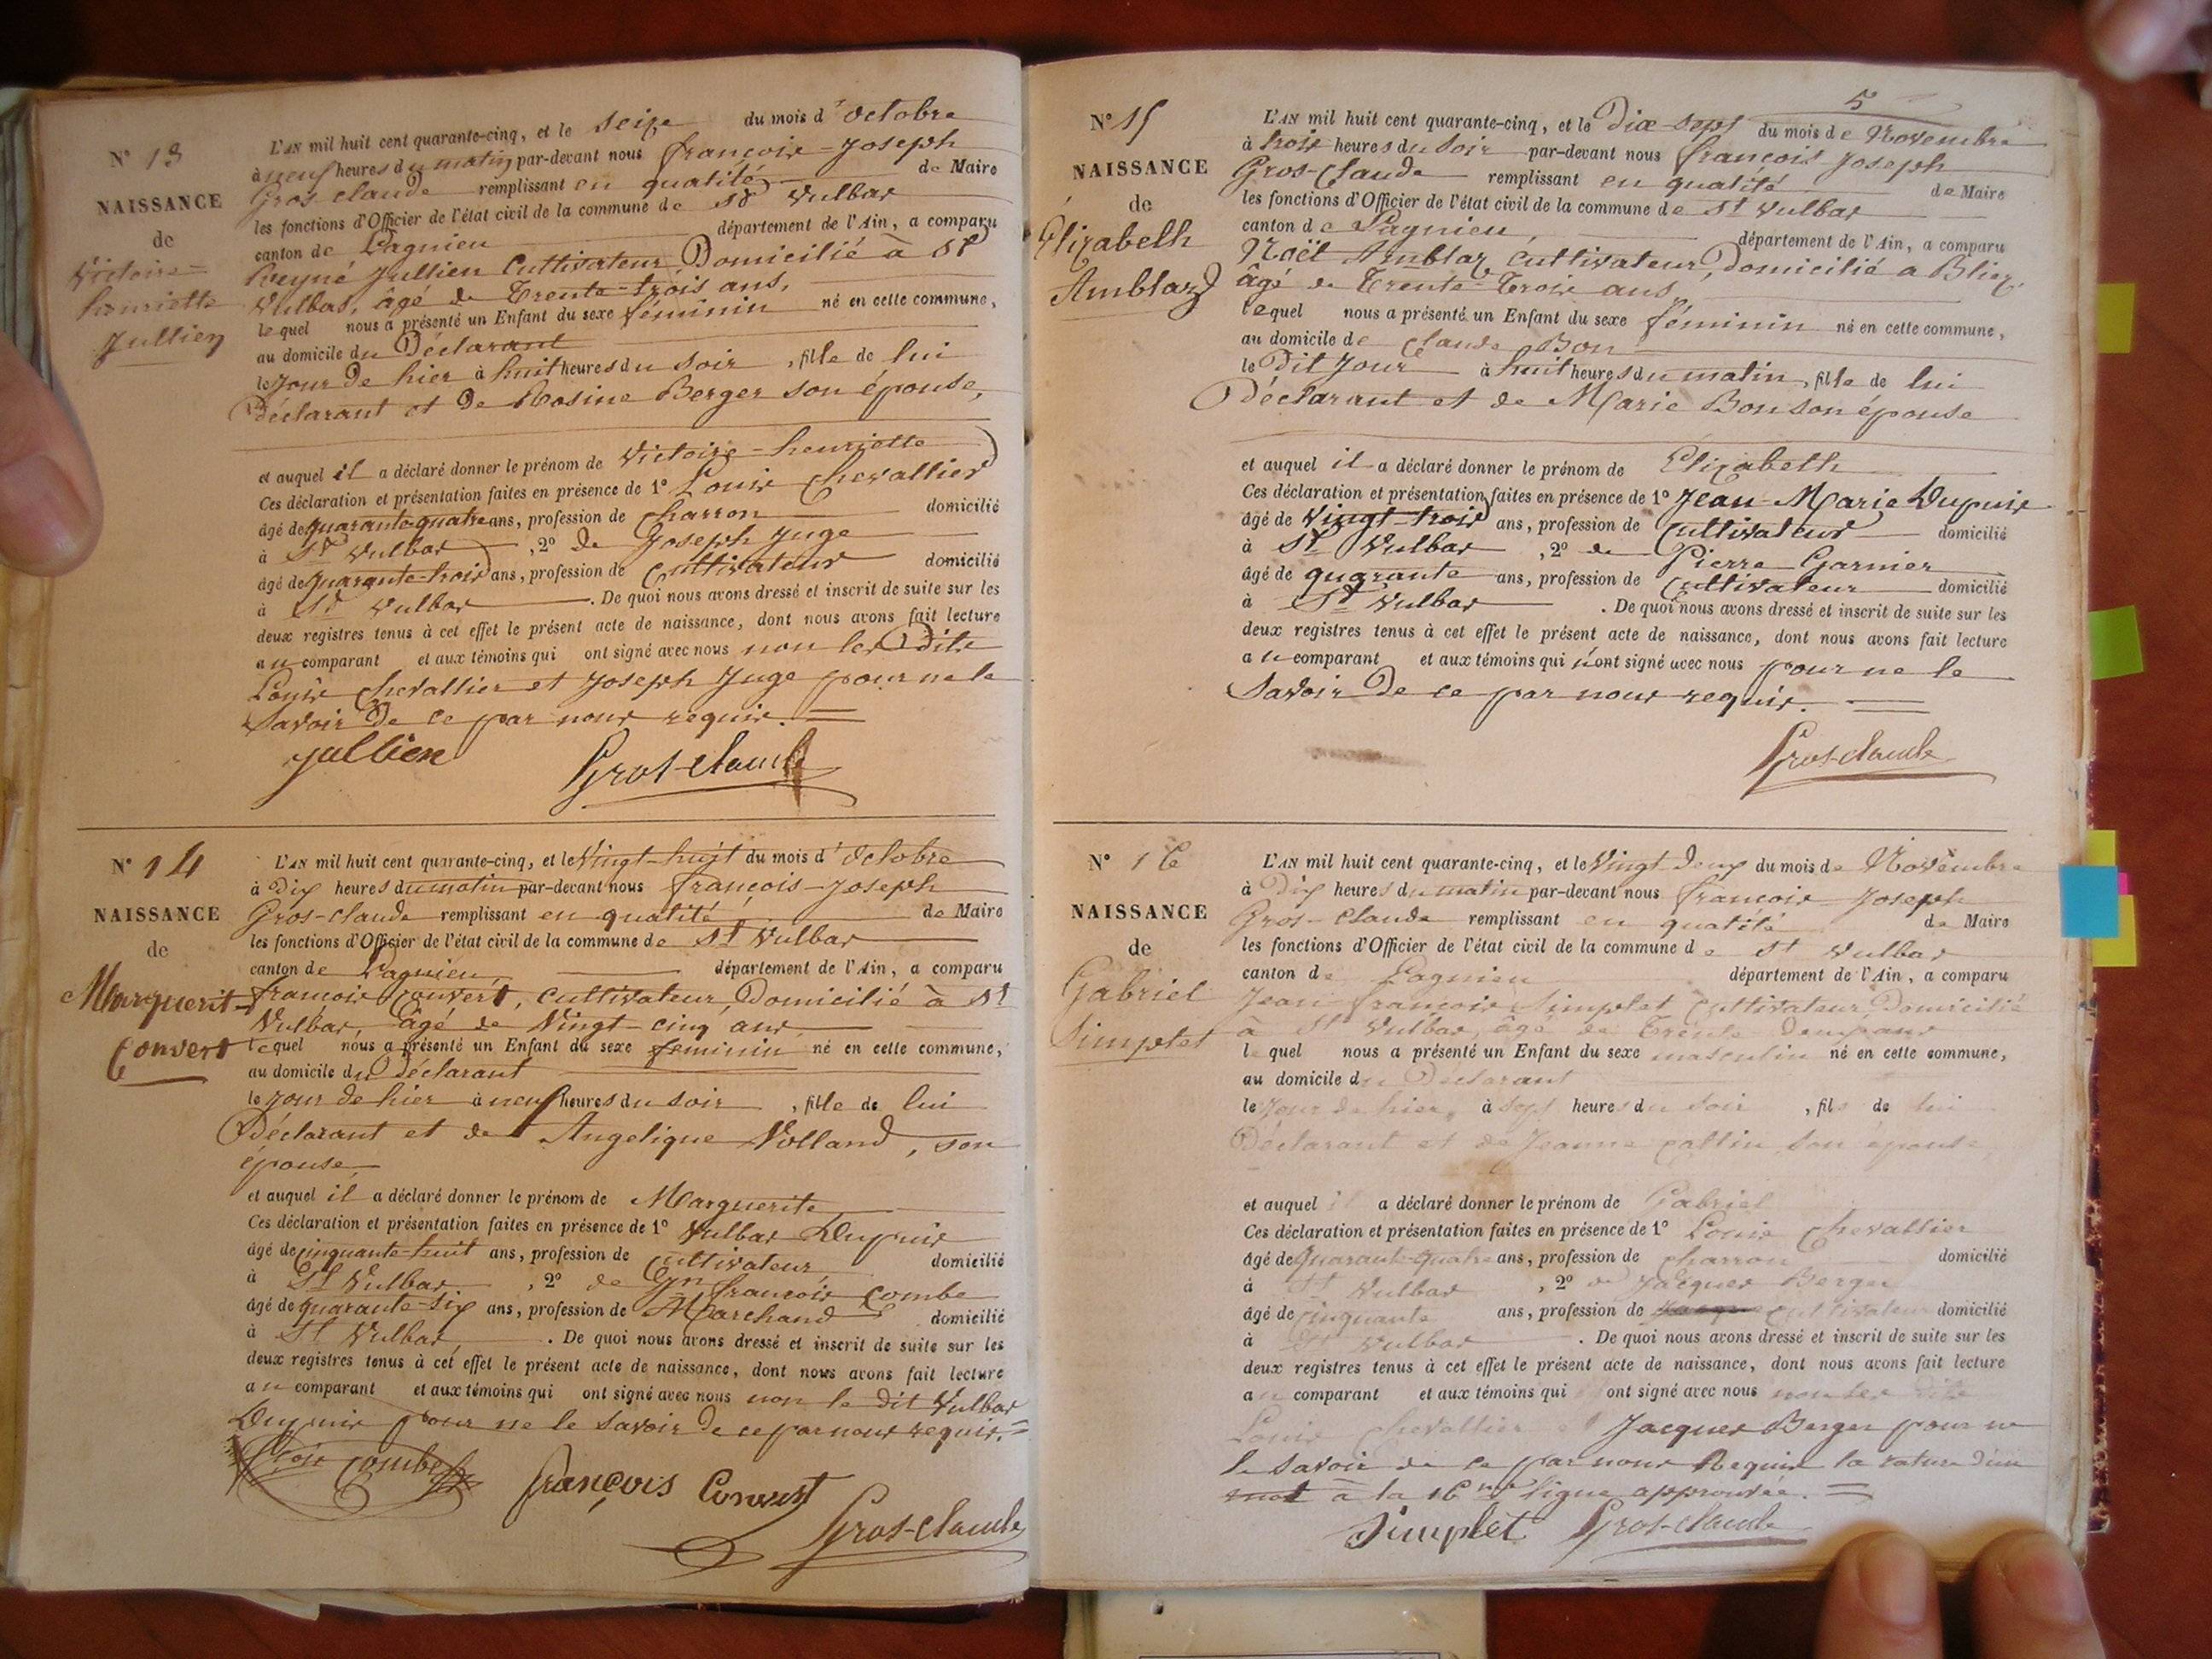 N° 13
NAISSANCE
de
Victoire=
henriette
Jullien
L'AN mil huit cent quarante-cinq, et le seize du mois d'octobre
à neuf heures du matin par-devant nous françois-Joseph
Gros-claude remplissant en qualité de Maire
les fonctions d'Officier de l'état civil de la commune de St Vulbas
canton de Lagnieu département de l'Ain, a comparu
Reyné Jullien Cultivateur Domicilié à St
Vulbas, âgé de Trente-trois ans,
lequel nous a présenté un Enfant du sexe féminin né en cette commune,
au domicile du Déclarant
le Jour de hier à huit heures du soir, fille de lui
Déclarant et de Rosine Berger son épouse,
et auquel il a déclaré donner le prénom de Victoire=henriette
Ces déclaration et présentation faites en présence de 1° Louis Chevallier
âgé de quarante-quatre ans, profession de charron domicilié
à St Vulbas, 2° de Joseph Juge
âgé de quarante-trois ans, profession de Cultivateur domicilié
à St Vulbas. De quoi nous avons dressé et inscrit de suite sur les
deux registres tenus à cet effet le présent acte de naissance, dont nous avons fait lecture
au comparant et aux témoins qui ont signé avec nous non les Dits
Louis Chevallier et Joseph Juge pour ne le
savoir De ce par nous requis.
jullien Gros-claude
N° 14
NAISSANCE
de
Marguerite
Convert
L'AN mil huit cent quarante-cinq, et le Vingt-huit du mois d'octobre
à Dix heures du matin par-devant nous françois-Joseph
Gros-claude remplissant en qualité de Maire
les fonctions d'Officier de l'état civil de la commune de St Vulbas
canton de Lagnieu, département de l'Ain, a comparu
françois Convert, cultivateur, Domicilié à St
Vulbas, âgé de Vingt-cinq ans
lequel nous a présenté un Enfant du sexe feminin né en cette commune,
au domicile du Déclarant
le Jour de hier à neuf heures du soir, fille de lui
Déclarant et de Angelique Volland, son
épouse
et auquel il a déclaré donner le prénom de Marguerite
Ces déclaration et présentation faites en présence de 1° Vulbas Dupuis
âgé de cinquante-huit ans, profession de Cultivateur domicilié
à St Vulbas, 2° de françois Combe
âgé de quarante-six ans, profession de Marchand domicilié
à St Vulbas. De quoi nous avons dressé et inscrit de suite sur les
deux registres tenus à cet effet le présent acte de naissance, dont nous avons fait lecture
au comparant et aux témoins qui ont signé avec nous non le dit Vulbas
Dupuis pour ne le savoir De ce par nous requis.=
Combe françois Convert
Gros-claude
5
N° 15
NAISSANCE
de
Elizabeth
Amblard
L'AN mil huit cent quarante-cinq, et le Dix-sept du mois de Novembre
à trois heures du soir par-devant nous françois Joseph
Gros-Claude remplissant en qualité de Maire
les fonctions d'Officier de l'état civil de la commune de St Vulbas
canton de Lagnieu, département de l'Ain, a comparu
Noël Amblar, cultivateur, Domicilié a Blier,
âgé de Trente-Trois ans
lequel nous a présenté un Enfant du sexe féminin né en cette commune,
au domicile de Claude Bon
le Dit Jour à huit heures du matin, fille de lui
Déclarant et de Marie Bon son épouse
et auquel il a déclaré donner le prénom de Elizabeth
Ces déclaration et présentation faites en présence de 1° Jean-Marie Dupuis
âgé de Vingt-trois ans, profession de Cultivateur domicilié
à St Vulbas, 2° de Pierre Garnier
âgé de quarante ans, profession de Cultivateur domicilié
à St Vulbas. De quoi nous avons dressé et inscrit de suite sur les
deux registres tenus à cet effet le présent acte de naissance, dont nous avons fait lecture
au comparant et aux témoins qui n'ont signé avec nous pour ne le
savoir De ce par nous requis.
Gros-claude
N° 16
NAISSANCE
de
Gabriel
Simplet
L'AN mil huit cent quarante-cinq, et le Vingt-Deux du mois de Novembre
à Dix heures du matin par-devant nous françois Joseph
Gros-Claude remplissant en qualité de Maire
les fonctions d'Officier de l'état civil de la commune de St Vulbas
canton de Lagnieu département de l'Ain, a comparu
Jean françois Simplet Cultivateur, Domicilié
à St Vulbas, âgé de Trente Deux ans
lequel nous a présenté un Enfant du sexe masculin né en cette commune,
au domicile du Déclarant
le Jour de hier, à sept heures du soir, fils de lui
Déclarant et de Jeanne Cattin, son épouse
et auquel il a déclaré donner le prénom de Gabriel
Ces déclaration et présentation faites en présence de 1° Louis Chevallier
âgé de quarante-quatre ans, profession de charron domicilié
à St Vulbas, 2° de Jacques Berger
âgé de cinquante ans, profession de cultivateur domicilié
à St Vulbas. De quoi nous avons dressé et inscrit de suite sur les
deux registres tenus à cet effet le présent acte de naissance, dont nous avons fait lecture
au comparant et aux témoins qui ont signé avec nous non les dits
Louis Chevallier et Jacques Berger pour ne
le savoir de ce par nous Requis la rature d'un
mot à la 16me ligne approuvée.
Simplet Gros-claude